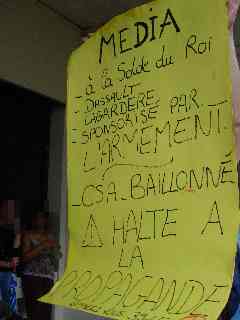 MEDIA
- à la Solde du Roi
- DASSAULT
- LAGARDÈRE
- SPONSORISÉ PAR
L'ARMEMENT
- CSA - BAILLONNÉ
⚠ HALTE A
LA
PROPAGANDE